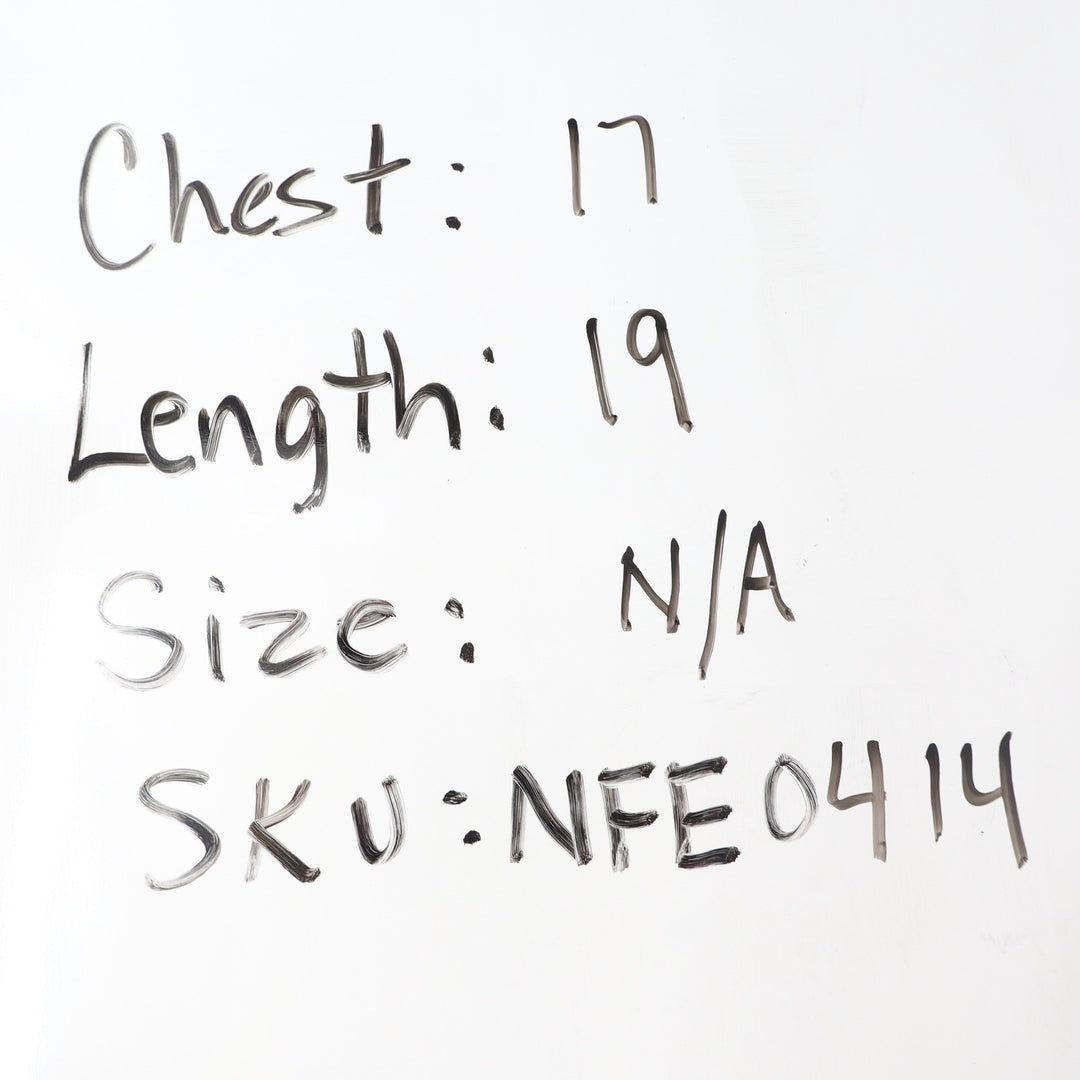 Chest: 17
Length: 19
Size: N/A
SKU: NFE0414